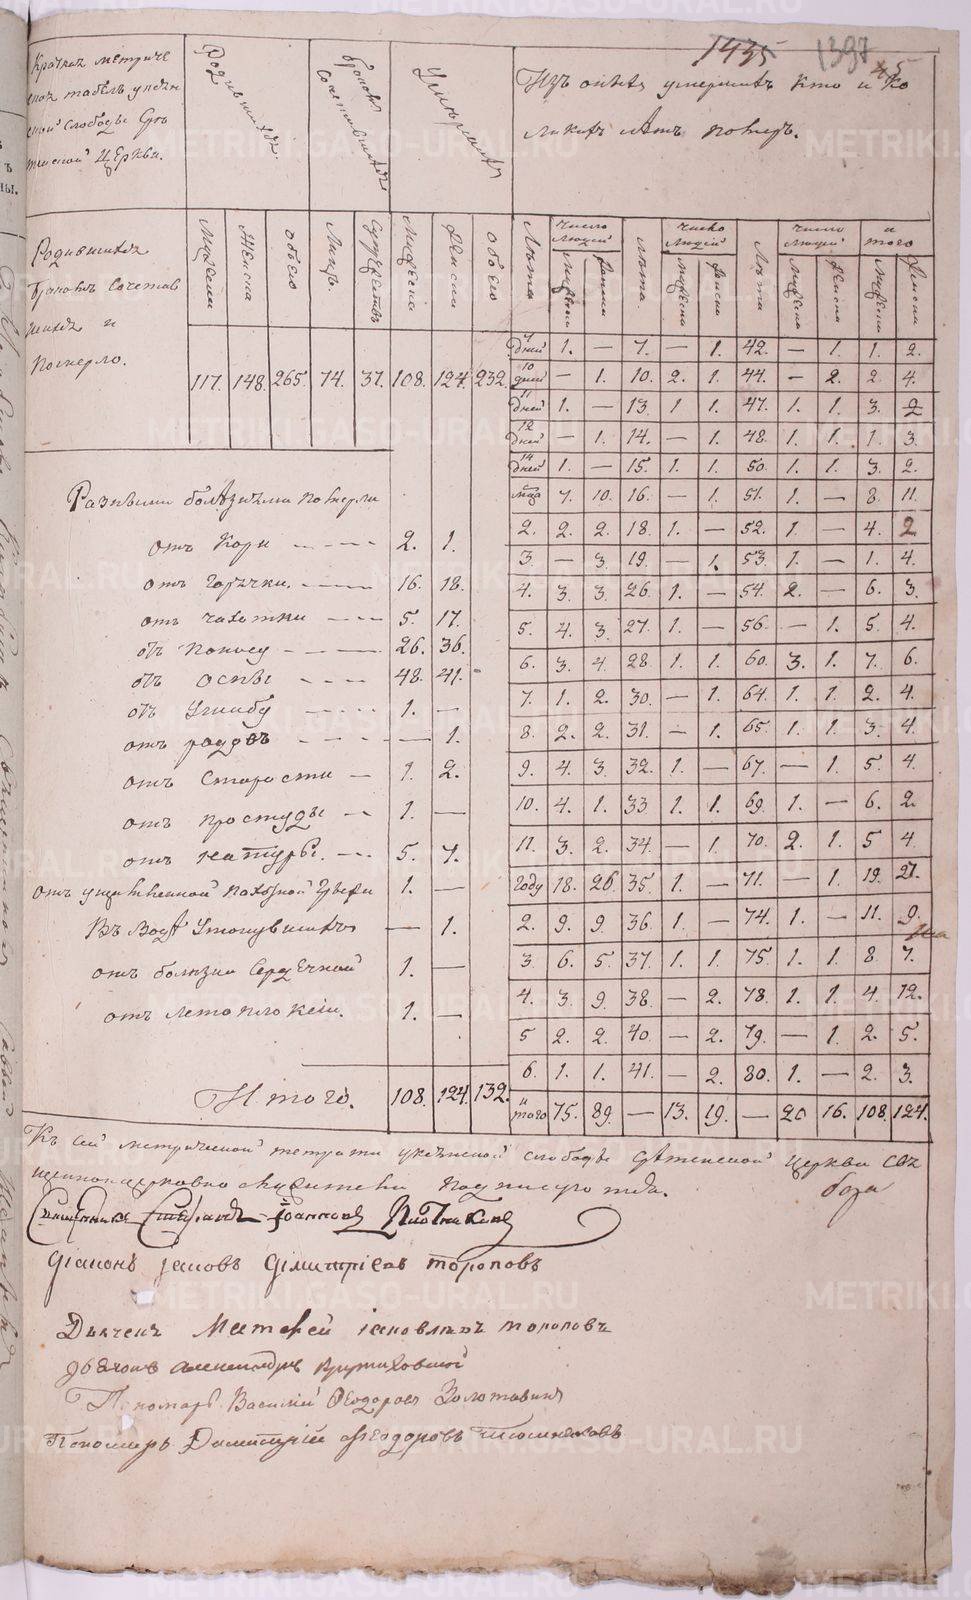 1435 1397
45
Краткая метриче
ской слободы Срѣ
тенской Церкви.
Родившихся
браковъ
сочетавшихся
Умершихъ
Изъ оныхъ умершихъ кто и ко
ликихъ лѣтъ померъ.
Родившихся
браковъ сочетав
шихся и
Померло.
Мужеска Женска обоего Лицъ Супружествъ Мужеска Женска обоего
117. 148. 265. 74. 37. 108. 124. 232.
Лѣта число людей Лѣта число людей Лѣта число людей и того
Мужеска Женска Мужеска Женска Мужеска Женска Мужеска Женска
7 дней 1. — 7. — 1. 42. — 1. 1. 2.
10 дней — 1. 10. 2. 1. 44. — 2. 2. 4.
11 дней 1. — 13. 1 1. 47. 1. 1. 3. 2
12 дней — 1. 14. — 1. 48. 1. 1. 1. 3.
14 дней 1. — 15. 1. 1. 50. 1. 1. 3. 2.
мца 7. 10. 16. — 1. 51. 1. — 8. 11.
2. 2. 2. 18. 1. — 52. 1. — 4. 2.
3 — 3. 19. — 1. 53. 1. — 1. 4.
4. 3. 3. 26. 1. — 54. 2. — 6. 3.
5. 4. 3. 27. 1. — 56. — 1. 5. 4.
6. 3. 4. 28. 1. 1. 60. 3. 1. 7. 6.
7. 1. 2. 30. — 1. 64. 1. 1. 2. 4.
8. 2. 2. 31. — 1. 65. 1. 1. 3. 4.
9. 4. 3. 32. 1. — 67. — 1. 5. 4.
10. 4. 1. 33 1. 1. 69. 1. — 6. 2.
11. 3. 2. 34. — 1. 70. 2. 1. 5 4.
Году 18. 26. 35. 1. — 71. — 1. 19. 27.
2. 9. 9. 36. 1. — 74. 1. — 11. 9.
3. 6. 5. 37. 1. 1. 75. 1. 1. 8 7.
4. 3. 9. 38. — 2. 78. 1. 1. 4. 12.
5 2. 2. 40. — 2. 79. — 1. 2. 5.
6. 1. 1. 41. — 2. 80. 1. — 2. 3.
и того 75. 89. — 13. 19. — 20 16. 108. 124.
Разными болѣзньми померли
отъ Кори 2. 1.
отъ горячки. 16. 18.
отъ чахотки 5. 17.
отъ поносу 26. 36.
отъ оспы 48. 41.
отъ Ушибу 1. —
отъ родовъ — 1.
отъ Старости 1. 2.
отъ простуды 1. —
отъ натуры. 5. 7.
1. —
Въ Водѣ Утонувшихъ — 1.
отъ болѣзни Сердечной 1. —
1. —
Итого. 108. 124. 132.
Къ сей метрической тетрати слободы Срѣтенской Церкви
церковно служители подписуются.
Священникъ Стефанъ Іоанновъ
діаконъ Іаковъ Димитріевъ тороповъ
Дьячекъ Матѳей Іаковлевъ тороповъ
дьячокъ Александръ
Пономарь Василій Ѳеодоровъ Золотавинъ
Пономарь Димитрій Ѳеодоровъ
METRIKI.GASO-URAL.RU